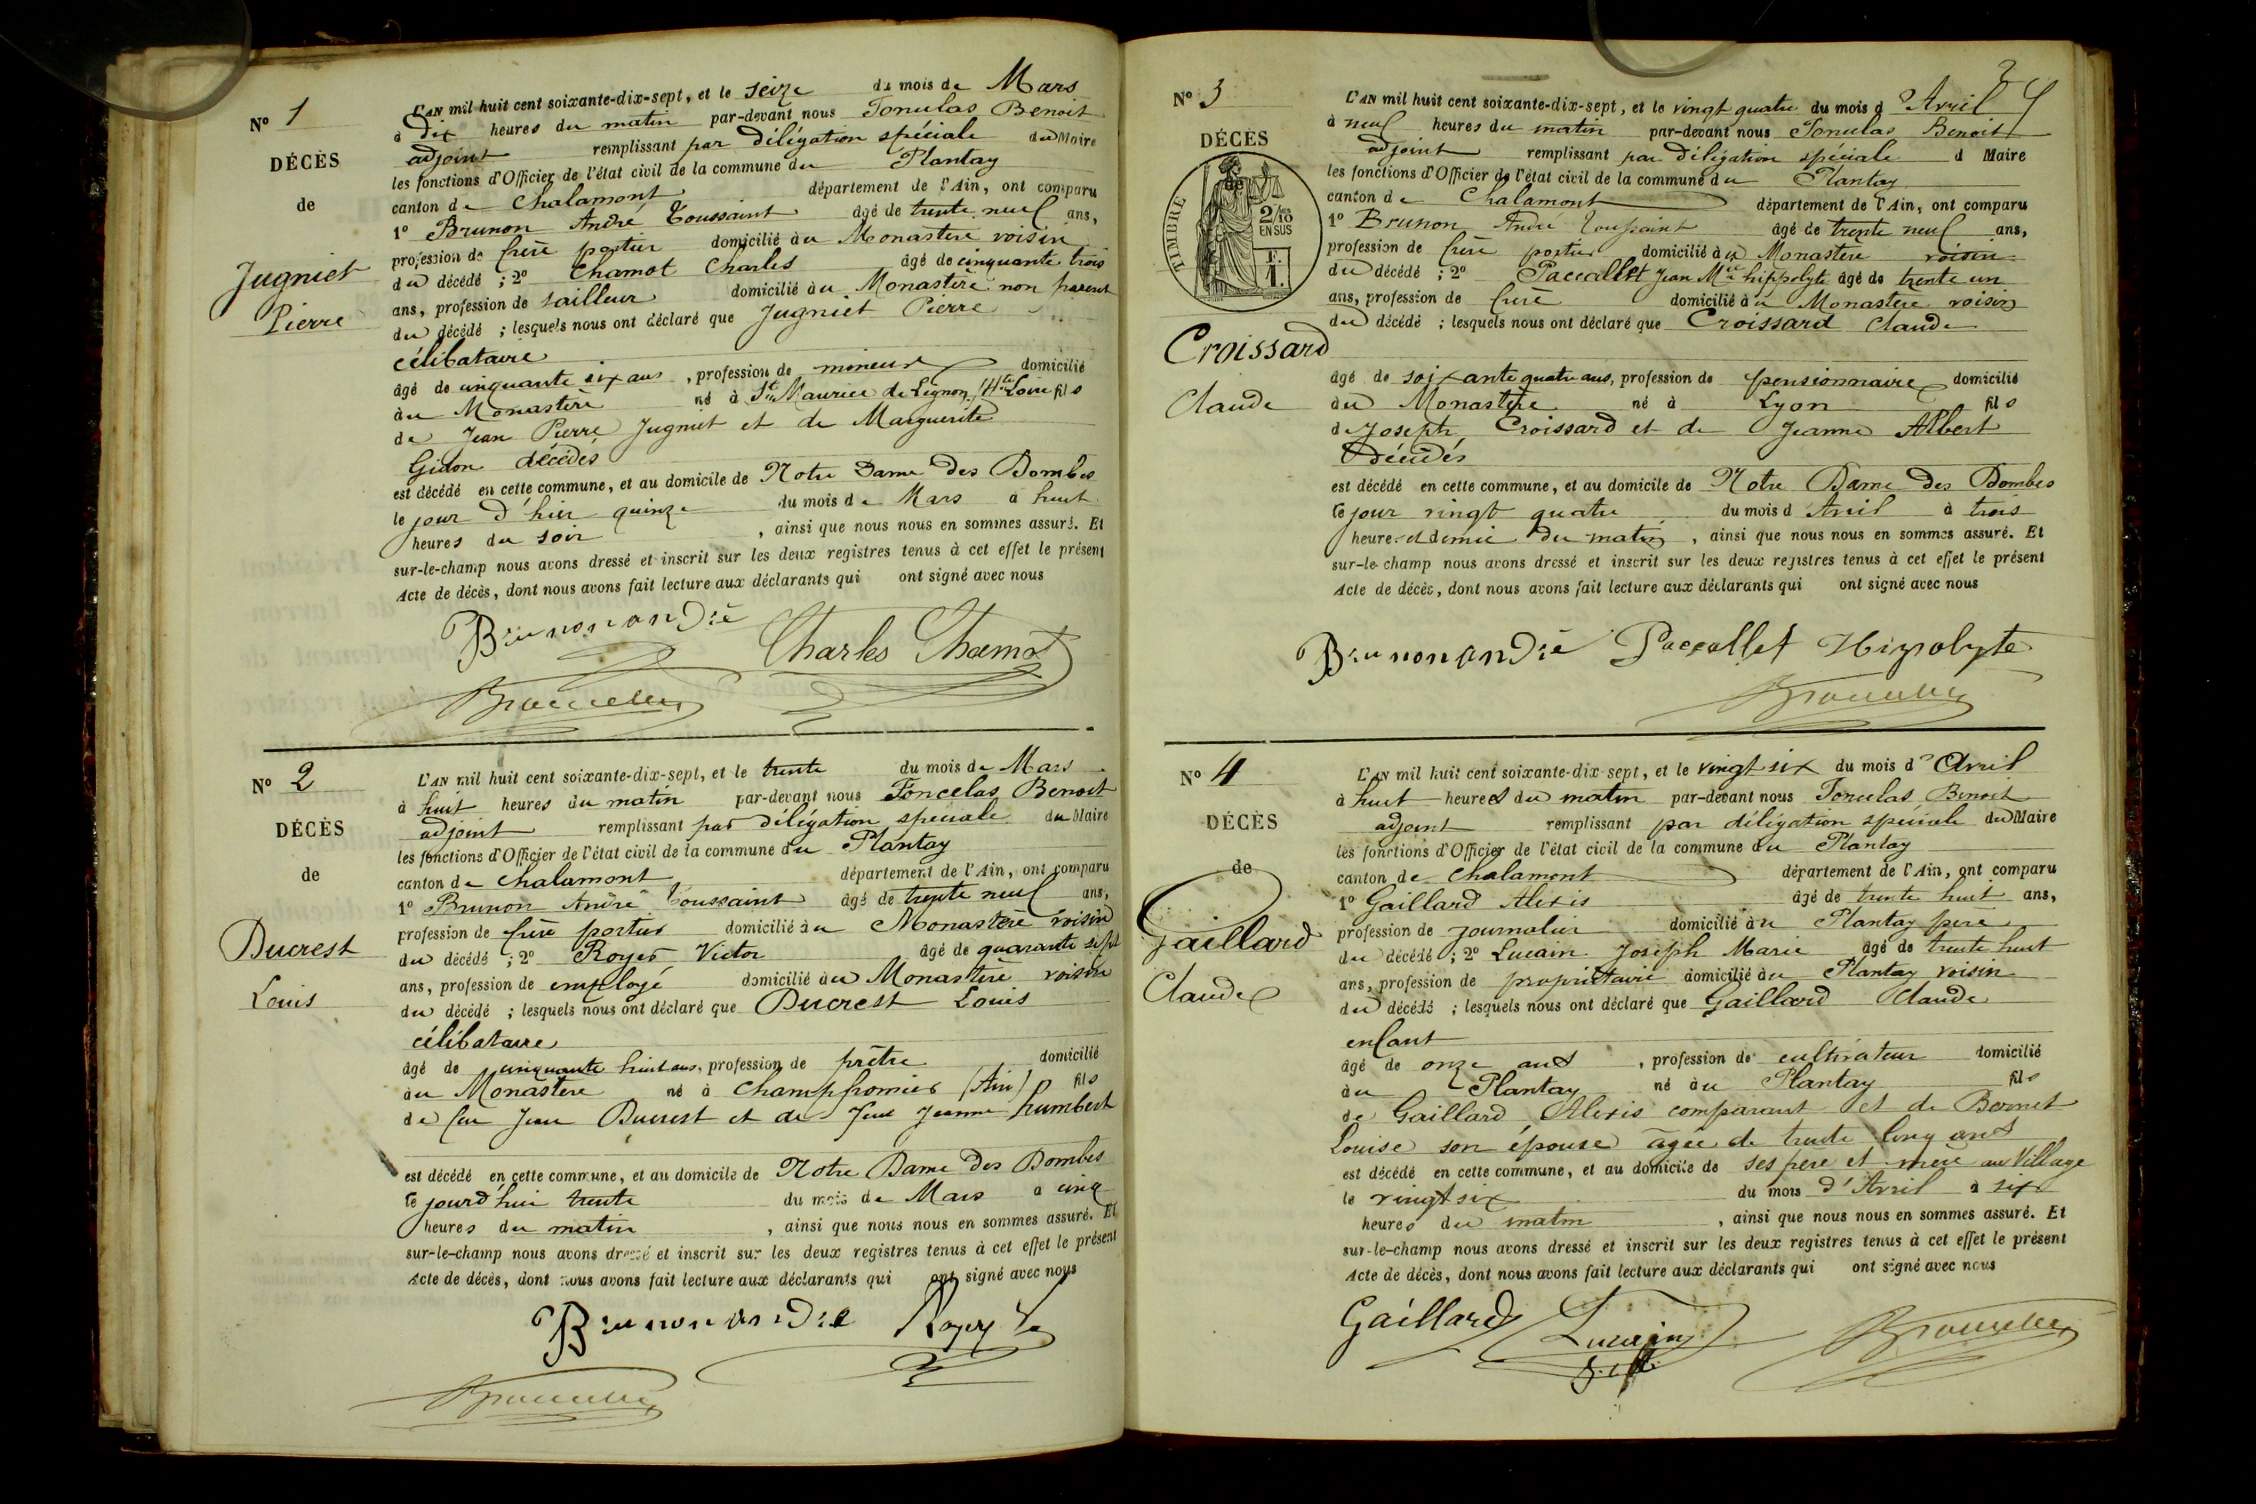 Nº 1
DÉCÈS
de
Jugniet
Pierre
L'AN mil huit cent soixante-dix-sept, et le seize du mois de Mars
à dix heures du matin par-devant nous Foncelas Benoit
adjoint remplissant par délégation spéciale du Maire
les fonctions d'Officier de l'état civil de la commune du Plantay
canton de Chalamont département de l'Ain, ont comparu
1º Brunon André Toussaint âgé de trente neuf ans,
profession de frère portier domicilié au Monastère voisin
du décédé ; 2º Chamot Charles âgé de cinquante trois
ans, profession de tailleur domicilié au Monastère non parent
du décédé ; lesquels nous ont déclaré que Jugniet Pierre
célibataire
âgé de cinquante six ans, profession de mineur domicilié
au Monastère né à St Maurice de Lignon (Hte Loire fils
de Jean Pierre Jugniet et de Marguerite
Gidon décédés
est décédé en cette commune, et au domicile de Notre Dame des Dombes
le jour d'hier quinze du mois de Mars à huit
heures du soir, ainsi que nous nous en sommes assuré. Et
sur-le-champ nous avons dressé et inscrit sur les deux registres tenus à cet effet le présent
Acte de décès, dont nous avons fait lecture aux déclarants qui ont signé avec nous
Brunon andré Charles Chamot
Nº 2
DÉCÈS
de
Ducrest
Louis
L'AN mil huit cent soixante-dix-sept, et le trente du mois de Mars
à huit heures du matin par-devant nous Foncelas Benoit
adjoint remplissant par délégation spéciale du Maire
les fonctions d'Officier de l'état civil de la commune du Plantay
canton de Chalamont département de l'Ain, ont comparu
1º Brunon André Toussaint âgé de trente neuf ans,
profession de frère portier domicilié au Monastère voisin
du décédé ; 2º Royer Victor âgé de quarante sept
ans, profession de employé domicilié au Monastère voisin
du décédé ; lesquels nous ont déclaré que Ducrest Louis
célibataire
âgé de cinquante huit ans, profession de prêtre domicilié
au Monastère né à Champfromier (Ain) fils
de feu Jean Ducrest et de feue Jeanne humbert
est décédé en cette commune, et au domicile de Notre Dame des Dombes
le jourd'hui trente du mois de Mars à cinq
heures du matin, ainsi que nous nous en sommes assuré. Et
sur-le-champ nous avons dressé et inscrit sur les deux registres tenus à cet effet le présent
Acte de décès, dont nous avons fait lecture aux déclarants qui ont signé avec nous
Brunon andré Royer
Nº 3
DÉCÈS
de
TIMBRE
2/10 EN SUS
Croissard
Claude
L'AN mil huit cent soixante-dix-sept, et le vingt quatre du mois d Avril
à neuf heures du matin par-devant nous Foncelas Benoit
adjoint remplissant par délégation spéciale d Maire
les fonctions d'Officier de l'état civil de la commune du Plantay
canton de Chalamont département de l'Ain, ont comparu
1º Brunon André Toussaint âgé de trente neuf ans,
profession de frère portier domicilié au Monastère voisin
du décédé ; 2º Paccallet Jean Mie hippolyte âgé de trente un
ans, profession de frère domicilié au Monastère voisin
du décédé ; lesquels nous ont déclaré que Croissard Claude
âgé de soixante quatre ans, profession de pensionnaire domicilié
au Monastère né à Lyon fils
de Joseph Croissard et de Jeanne Albert
Décédés
est décédé en cette commune, et au domicile de Notre Dame des Dombes
le jour vingt quatre du mois d Avril à trois
heures et demie du matin, ainsi que nous nous en sommes assuré. Et
sur-le-champ nous avons dressé et inscrit sur les deux registres tenus à cet effet le présent
Acte de décès, dont nous avons fait lecture aux déclarants qui ont signé avec nous
Brunon andré Paccallet Hipolyte
Nº 4
DÉCÈS
de
Gaillard
Claude
L'AN mil huit cent soixante-dix-sept, et le vingt six du mois d' Avril
à huit heures du matin par-devant nous Foncelas Benoit
adjoint remplissant par délégation spéciale du Maire
les fonctions d'Officier de l'état civil de la commune du Plantay
canton de Chalamont département de l'Ain, ont comparu
1º Gaillard Alexis âgé de trente huit ans,
profession de journalier domicilié au Plantay père
du décédé ; 2º Lucain Joseph Marie âgé de trente huit
ans, profession de propriétaire domicilié au Plantay voisin
du décédé ; lesquels nous ont déclaré que Gaillard Claude
enfant
âgé de onze ans, profession de cultivateur domicilié
au Plantay né au Plantay fils
de Gaillard Alexis comparant et de Bonnet
Louise son épouse âgée de trente cinq ans
est décédé en cette commune, et au domicile de ses père et mère au Village
le vingt six du mois d'Avril à six
heures du matin, ainsi que nous nous en sommes assuré. Et
sur-le-champ nous avons dressé et inscrit sur les deux registres tenus à cet effet le présent
Acte de décès, dont nous avons fait lecture aux déclarants qui ont signé avec nous
Gaillard Lucain